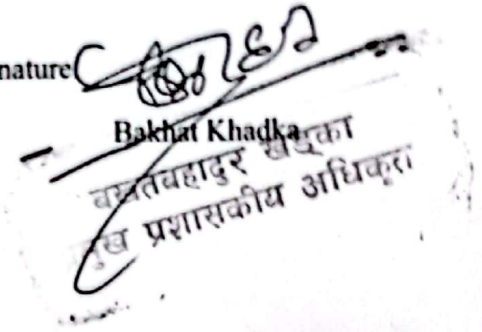 nature
Bakhat Khadka
बखतबहादुर खड्का
प्रशासकीय अधिकृत